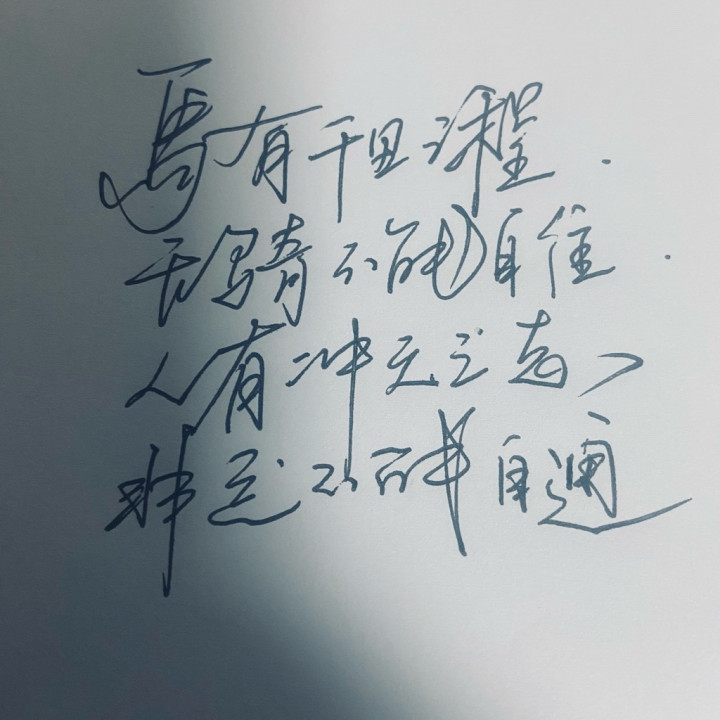 馬有千里之程.
无骑不能自往.
人有冲天之志,
非运不能自通